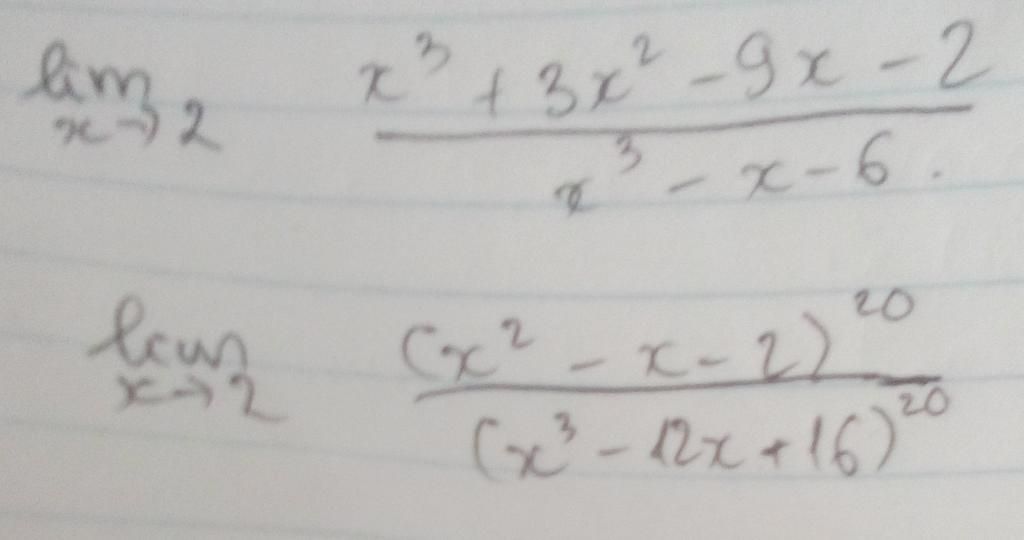 lim x→2 x³ + 3x² - 9x - 2 / x³ - x - 6.
lim x→2 (x² - x - 2)²⁰ / (x³ - 12x + 16)²⁰